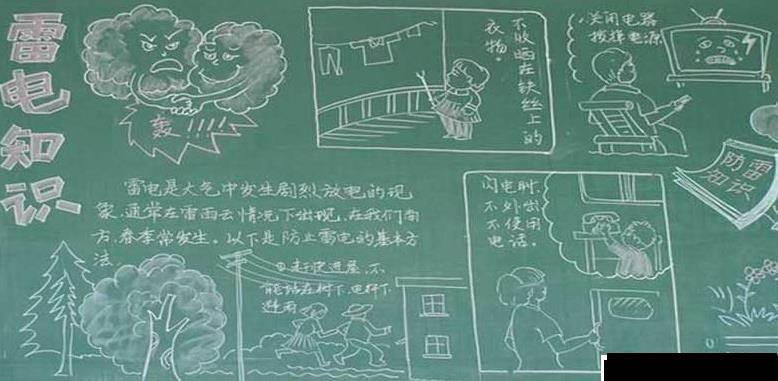 雷电知识
轰!!!!
不收晒在铁丝上的
衣物。
关闭电器
拔掉电源
防雷
知识
雷电是大气中发生剧烈放电的现
象,通常在雷雨云情况下出现,在我们南
方,春季常发生。以下是防止雷电的基本方
法
①赶快进屋,不
能站在树下、电杆下
避雨
闪电时,
不外出
不使用
电话。